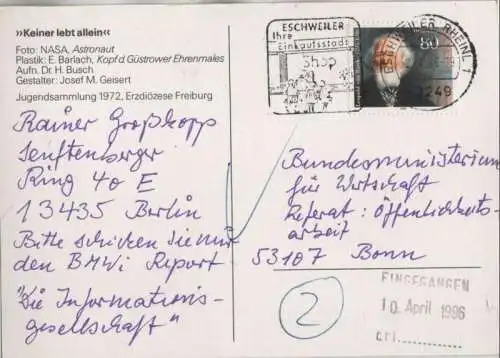 »Keiner lebt allein«
Foto: NASA, Astronaut
Plastik: E. Barlach, Kopf d. Güstrower Ehrenmales
Aufn. Dr. H. Busch
Gestalter: Josef M. Geisert
Jugendsammlung 1972, Erzdiözese Freiburg
Rainer Großkopp
Senftenberger
Ring 40 E
13435 Berlin
Bitte schicken Sie mir
den BMWi Report
"Die Informations-
gesellschaft"
ESCHWEILER
Ihre
Einkaufsstadt
Shop
80
ESCHWEILER, RHEINL 1
5249
Bundesministerium
für Wirtschaft
Referat: Öffentlichkeits-
arbeit
53107 Bonn
2
EINGEGANGEN
10. April 1996